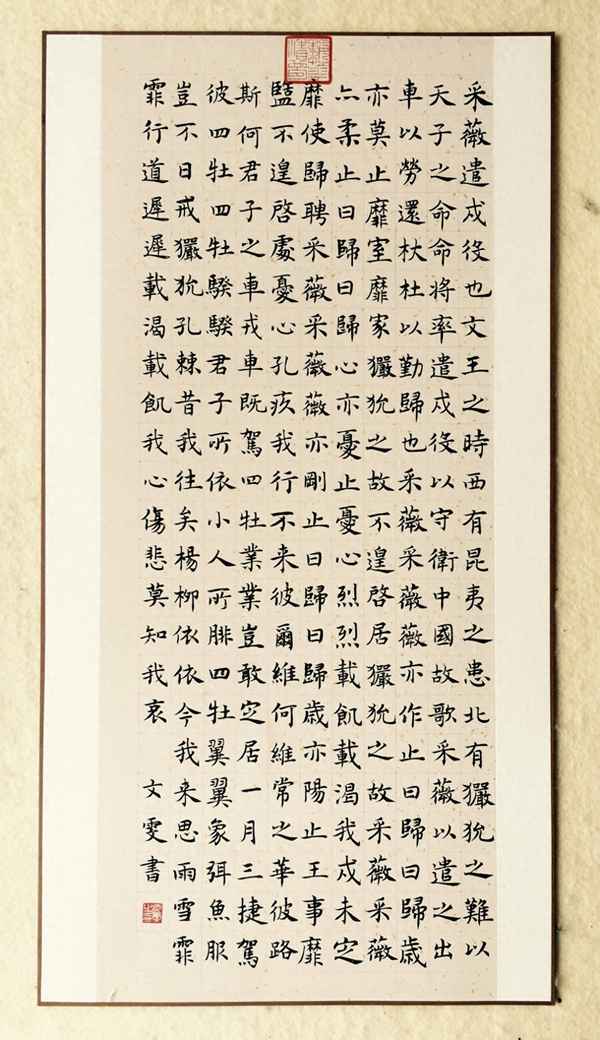 采薇遣戍役也文王之時西有昆夷之患北有玁狁之難以
天子之命命將率遣戍役以守衛中國故歌采薇以遣之出
車以勞還杕杜以勤歸也采薇采薇薇亦作止曰歸曰歸歲
亦莫止靡室靡家玁狁之故不遑啓居玁狁之故采薇采薇
亦柔止曰歸曰歸心亦憂止憂心烈烈載飢載渴我戍未定
靡使歸聘采薇采薇薇亦剛止曰歸曰歸歲亦陽止王事靡
盬不遑啓處憂心孔疚我行不来彼爾維何維常之華彼路
斯何君子之車戎車既駕四牡業業豈敢定居一月三捷駕
彼四牡四牡騤騤君子所依小人所腓四牡翼翼象弭魚服
豈不日戒玁狁孔棘昔我往矣楊柳依依今我来思雨雪霏
霏行道遲遲載渴載飢我心傷悲莫知我哀
文雯書